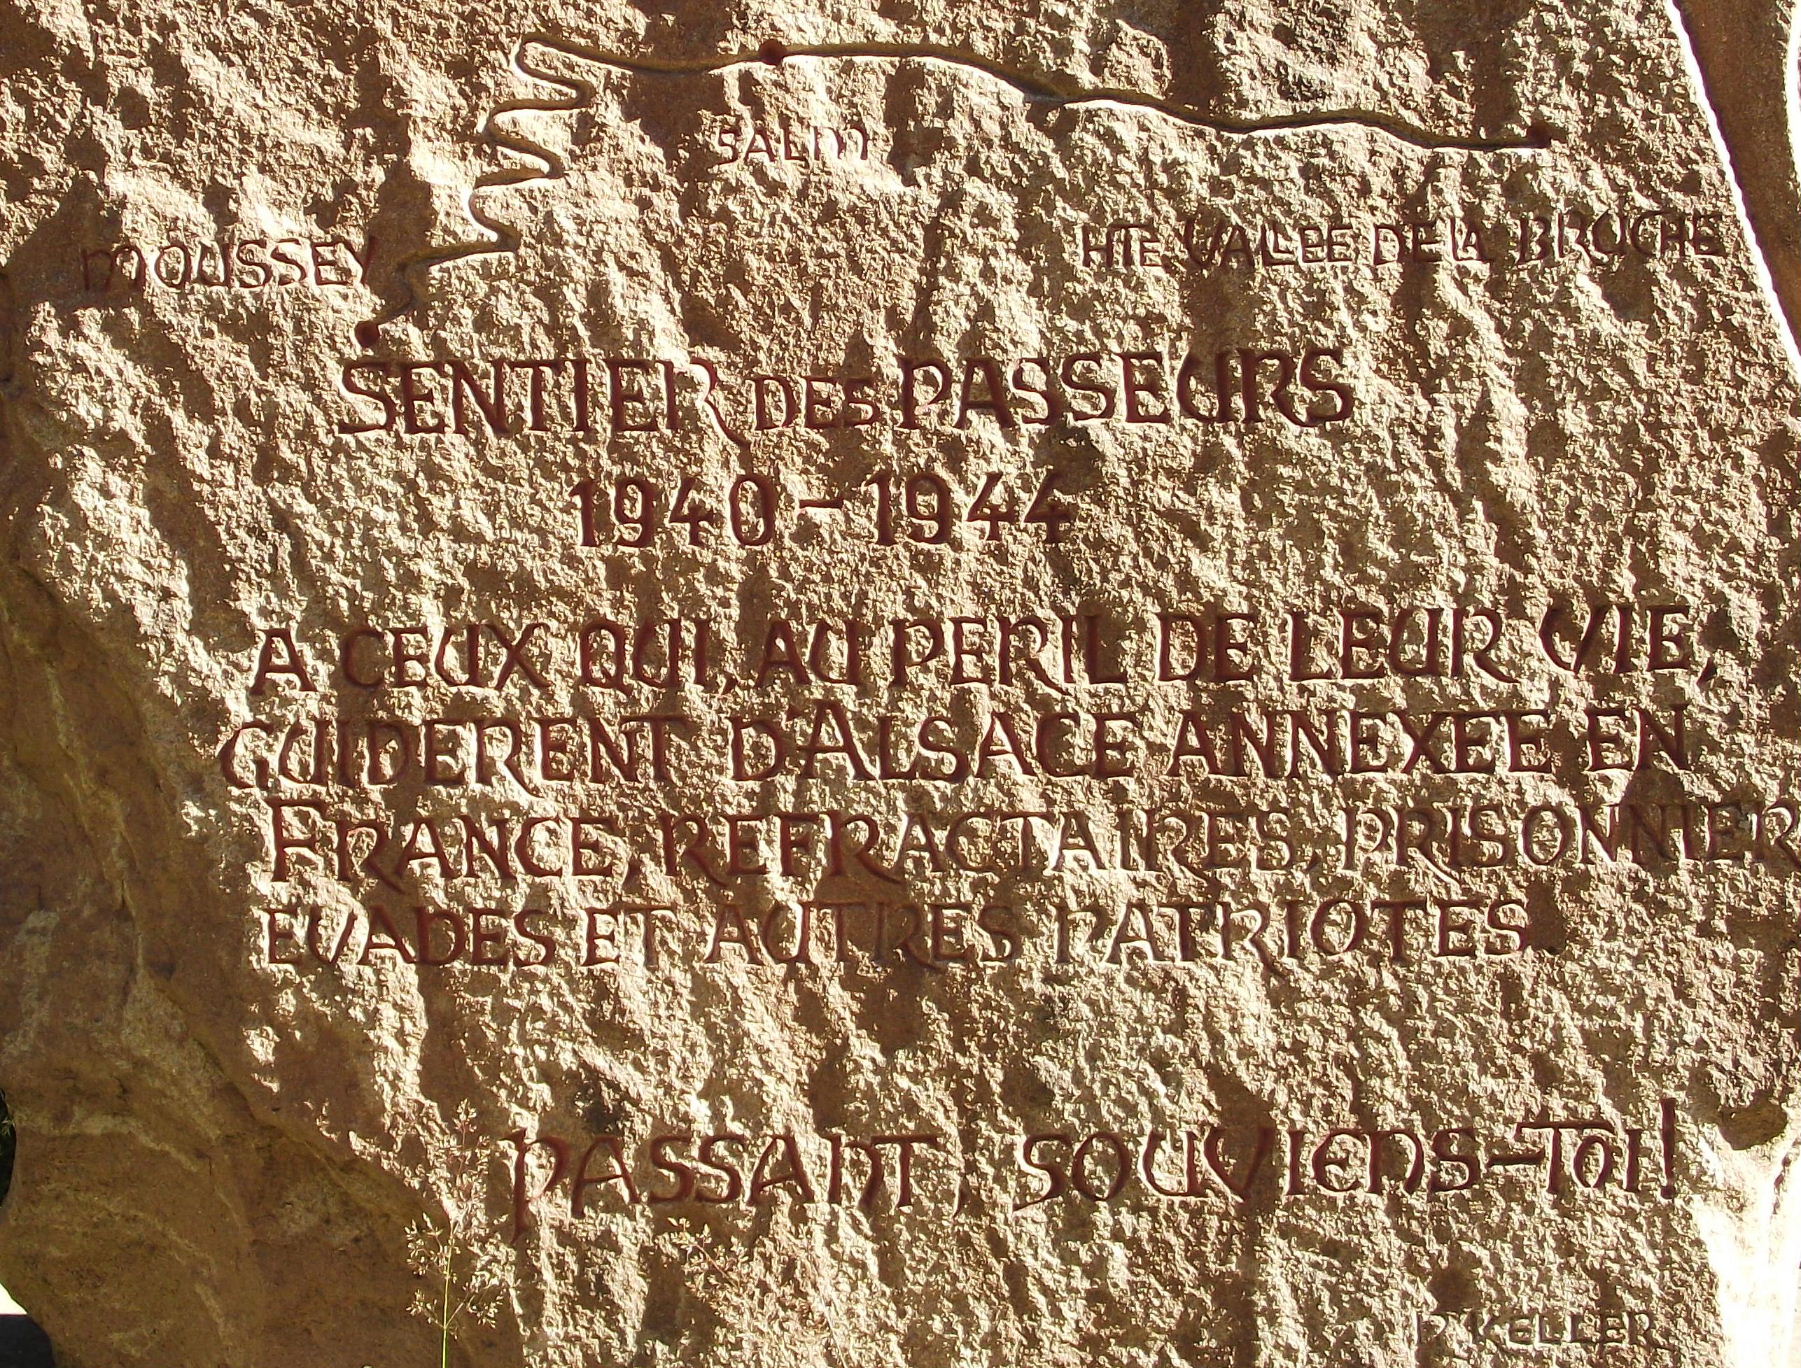 SALM
MOUSSEY
HTE VALLEE DE LA BRUCHE
SENTIER DES PASSEURS
1940-1944
A CEUX QUI, AU PERIL DE LEUR VIE,
GUIDERENT D'ALSACE ANNEXEE EN
FRANCE, REFRACTAIRES, PRISONNIER
EVADES ET AUTRES PATRIOTES
PASSANT, SOUVIENS-TOI!
KELLER